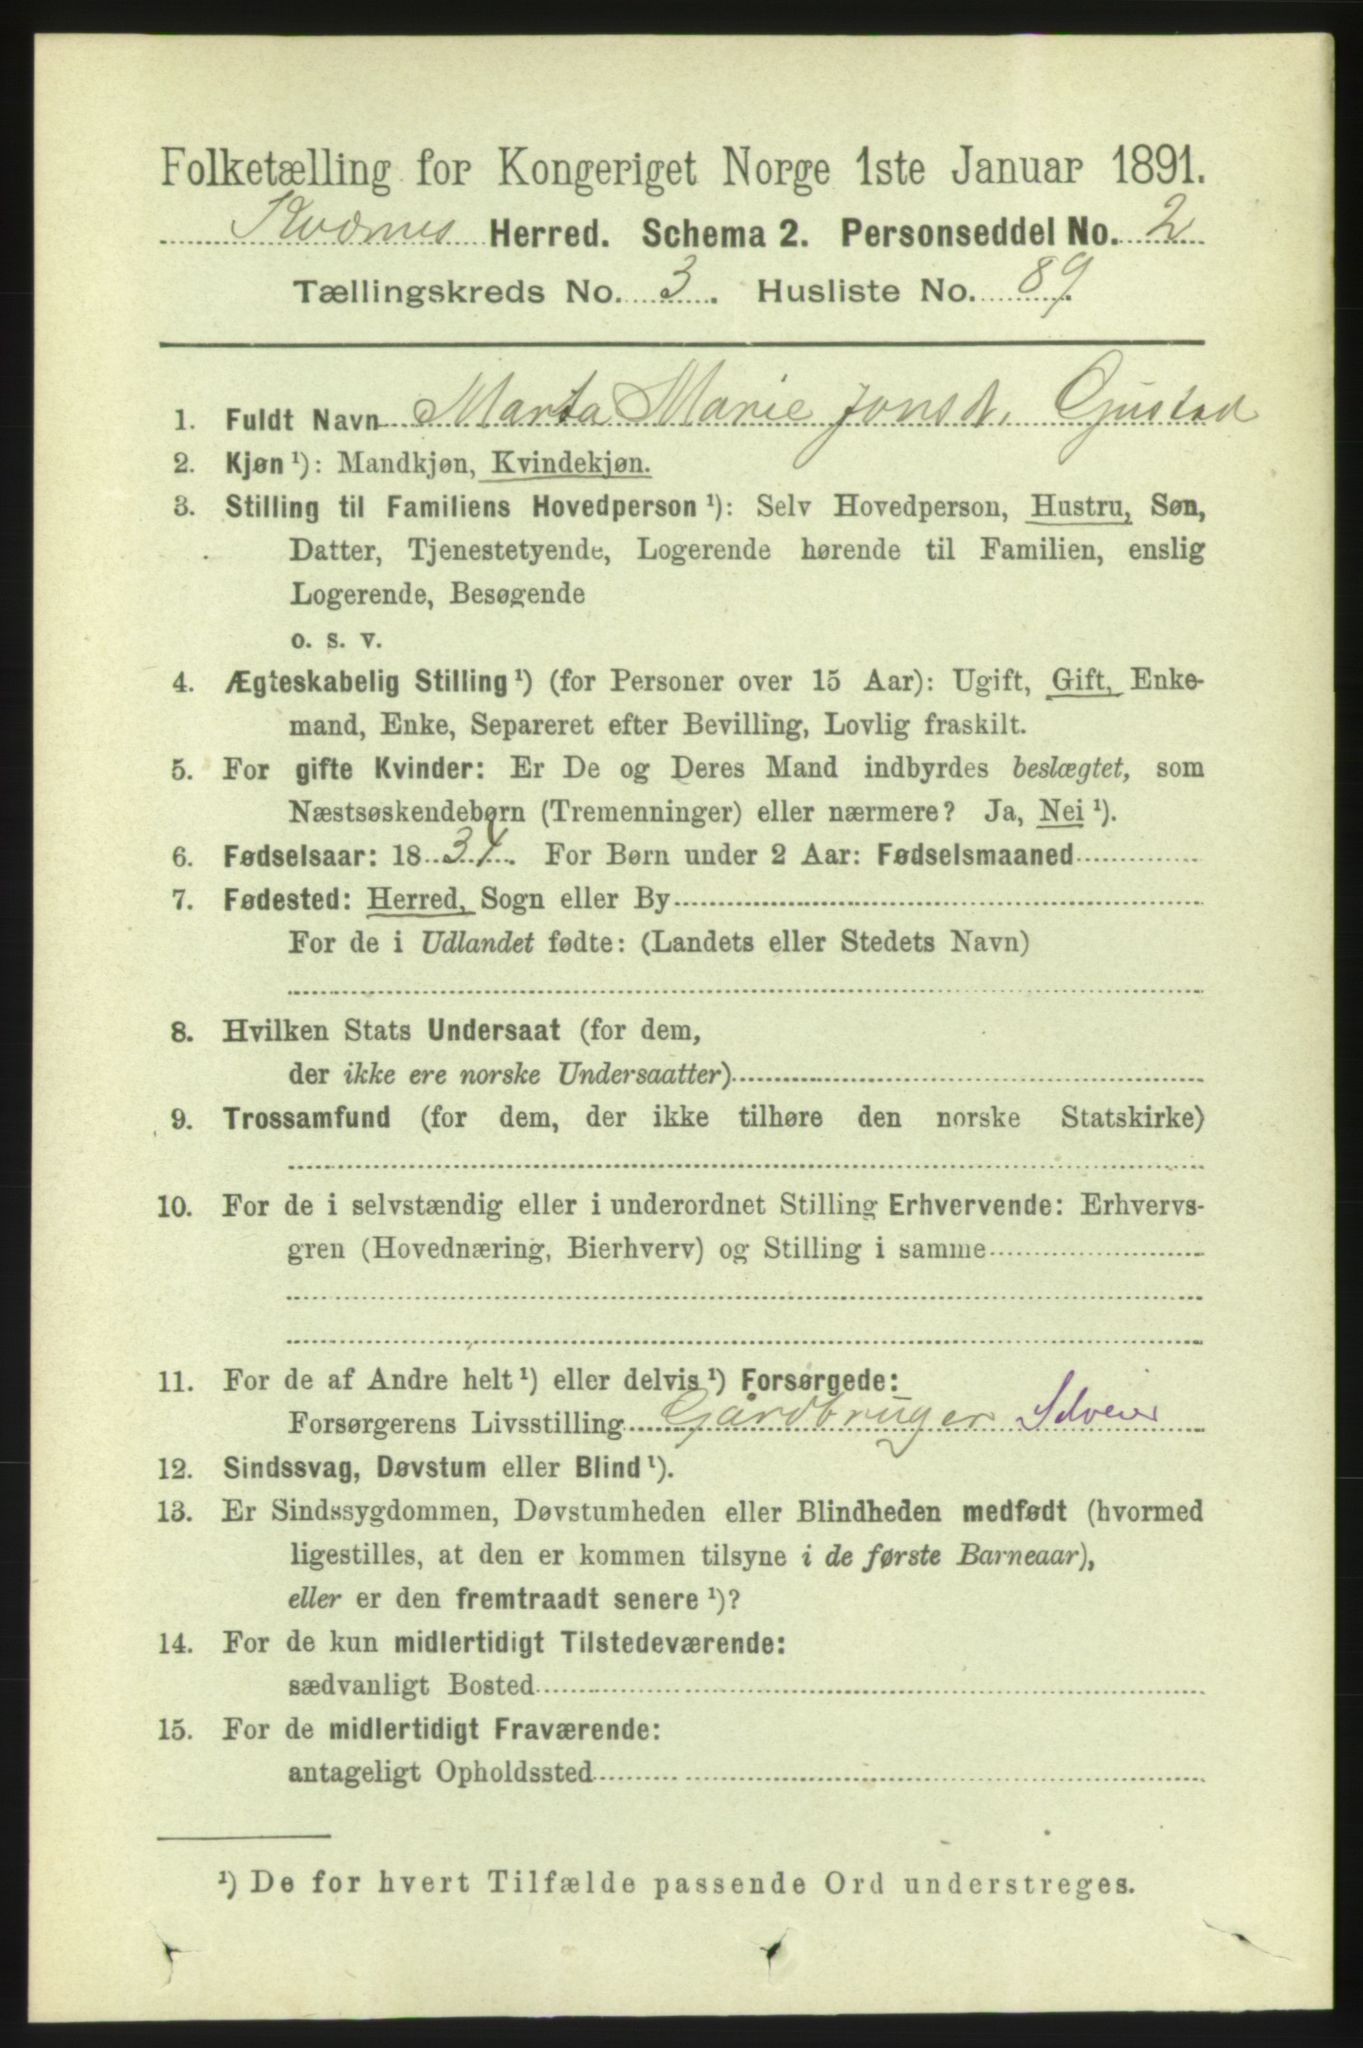 Folketælling for Kongeriget Norge 1ste Januar 1891.
Kværnes Herred. Schema 2. Personseddel No. 2
Tællingskreds No. 3. Husliste No. 89.
1. Fuldt Navn Marta Marie Jonsdr. Gjustad
2. Kjøn ¹): Mandkjøn, Kvindekjøn.
3. Stilling til Familiens Hovedperson ¹): Selv Hovedperson, Hustru, Søn,
Datter, Tjenestetyende, Logerende hørende til Familien, enslig
Logerende, Besøgende
o. s. v.
4. Ægteskabelig Stilling ¹) (for Personer over 15 Aar): Ugift, Gift, Enke-
mand, Enke, Separeret efter Bevilling, Lovlig fraskilt.
5. For gifte Kvinder: Er De og Deres Mand indbyrdes beslægtet, som
Næstsøskendebørn (Tremenninger) eller nærmere? Ja, Nei ¹).
6. Fødselsaar: 1834. For Børn under 2 Aar: Fødselsmaaned
7. Fødested: Herred, Sogn eller By
For de i Udlandet fødte: (Landets eller Stedets Navn)
8. Hvilken Stats Undersaat (for dem,
der ikke ere norske Undersaatter)
9. Trossamfund (for dem, der ikke tilhøre den norske Statskirke)
10. For de i selvstændig eller i underordnet Stilling Erhvervende: Erhvervs-
gren (Hovednæring, Bierhverv) og Stilling i samme
11. For de af Andre helt ¹) eller delvis ¹) Forsørgede:
Forsørgerens Livsstilling Gårdbruger Selveier
12. Sindssvag, Døvstum eller Blind ¹).
13. Er Sindssygdommen, Døvstumheden eller Blindheden medfødt (hvormed
ligestilles, at den er kommen tilsyne i de første Barneaar),
eller er den fremtraadt senere ¹)?
14. For de kun midlertidigt Tilstedeværende:
sædvanligt Bosted
15. For de midlertidigt Fraværende:
antageligt Opholdssted
¹) De for hvert Tilfælde passende Ord understreges.